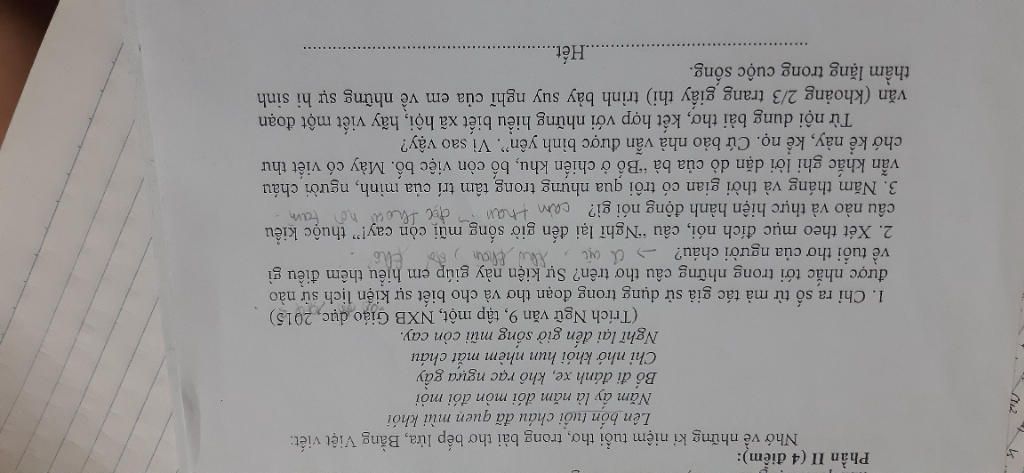 Phần II (4 điểm):
Nhớ về những kỉ niệm tuổi thơ, trong bài thơ bếp lửa, Bằng Việt viết:
Lên bốn tuổi cháu đã quen mùi khói
Năm ấy là năm đói mòn đói mỏi
Bố đi đánh xe, khô rạc ngựa gầy
Chỉ nhớ khói hun nhèm mắt cháu
Nghĩ lại đến giờ sống mũi còn cay.
(Trích Ngữ văn 9, tập một, NXB Giáo dục, 2015)
1. Chỉ ra số từ mà tác giả sử dụng trong đoạn thơ và cho biết sự kiện lịch sử nào
được nhắc tới trong những câu thơ trên? Sự kiện này giúp em hiểu thêm điều gì
về tuổi thơ của người cháu?
2. Xét theo mục đích nói, câu "Nghĩ lại đến giờ sống mũi còn cay!" thuộc kiểu
câu nào và thực hiện hành động nói gì? cảm thán
3. Năm tháng và thời gian có trôi qua nhưng trong tâm trí của mình, người cháu
vẫn khắc ghi lời dặn dò của bà "Bố ở chiến khu, bố còn việc bố. Mày có viết thư
chớ kể này, kể nọ. Cứ bảo nhà vẫn được bình yên". Vì sao vậy?
Từ nội dung bài thơ, kết hợp với những hiểu biết xã hội, hãy viết một đoạn
văn (khoảng 2/3 trang giấy thi) trình bày suy nghĩ của em về những sự hi sinh
thầm lặng trong cuộc sống.
Hết